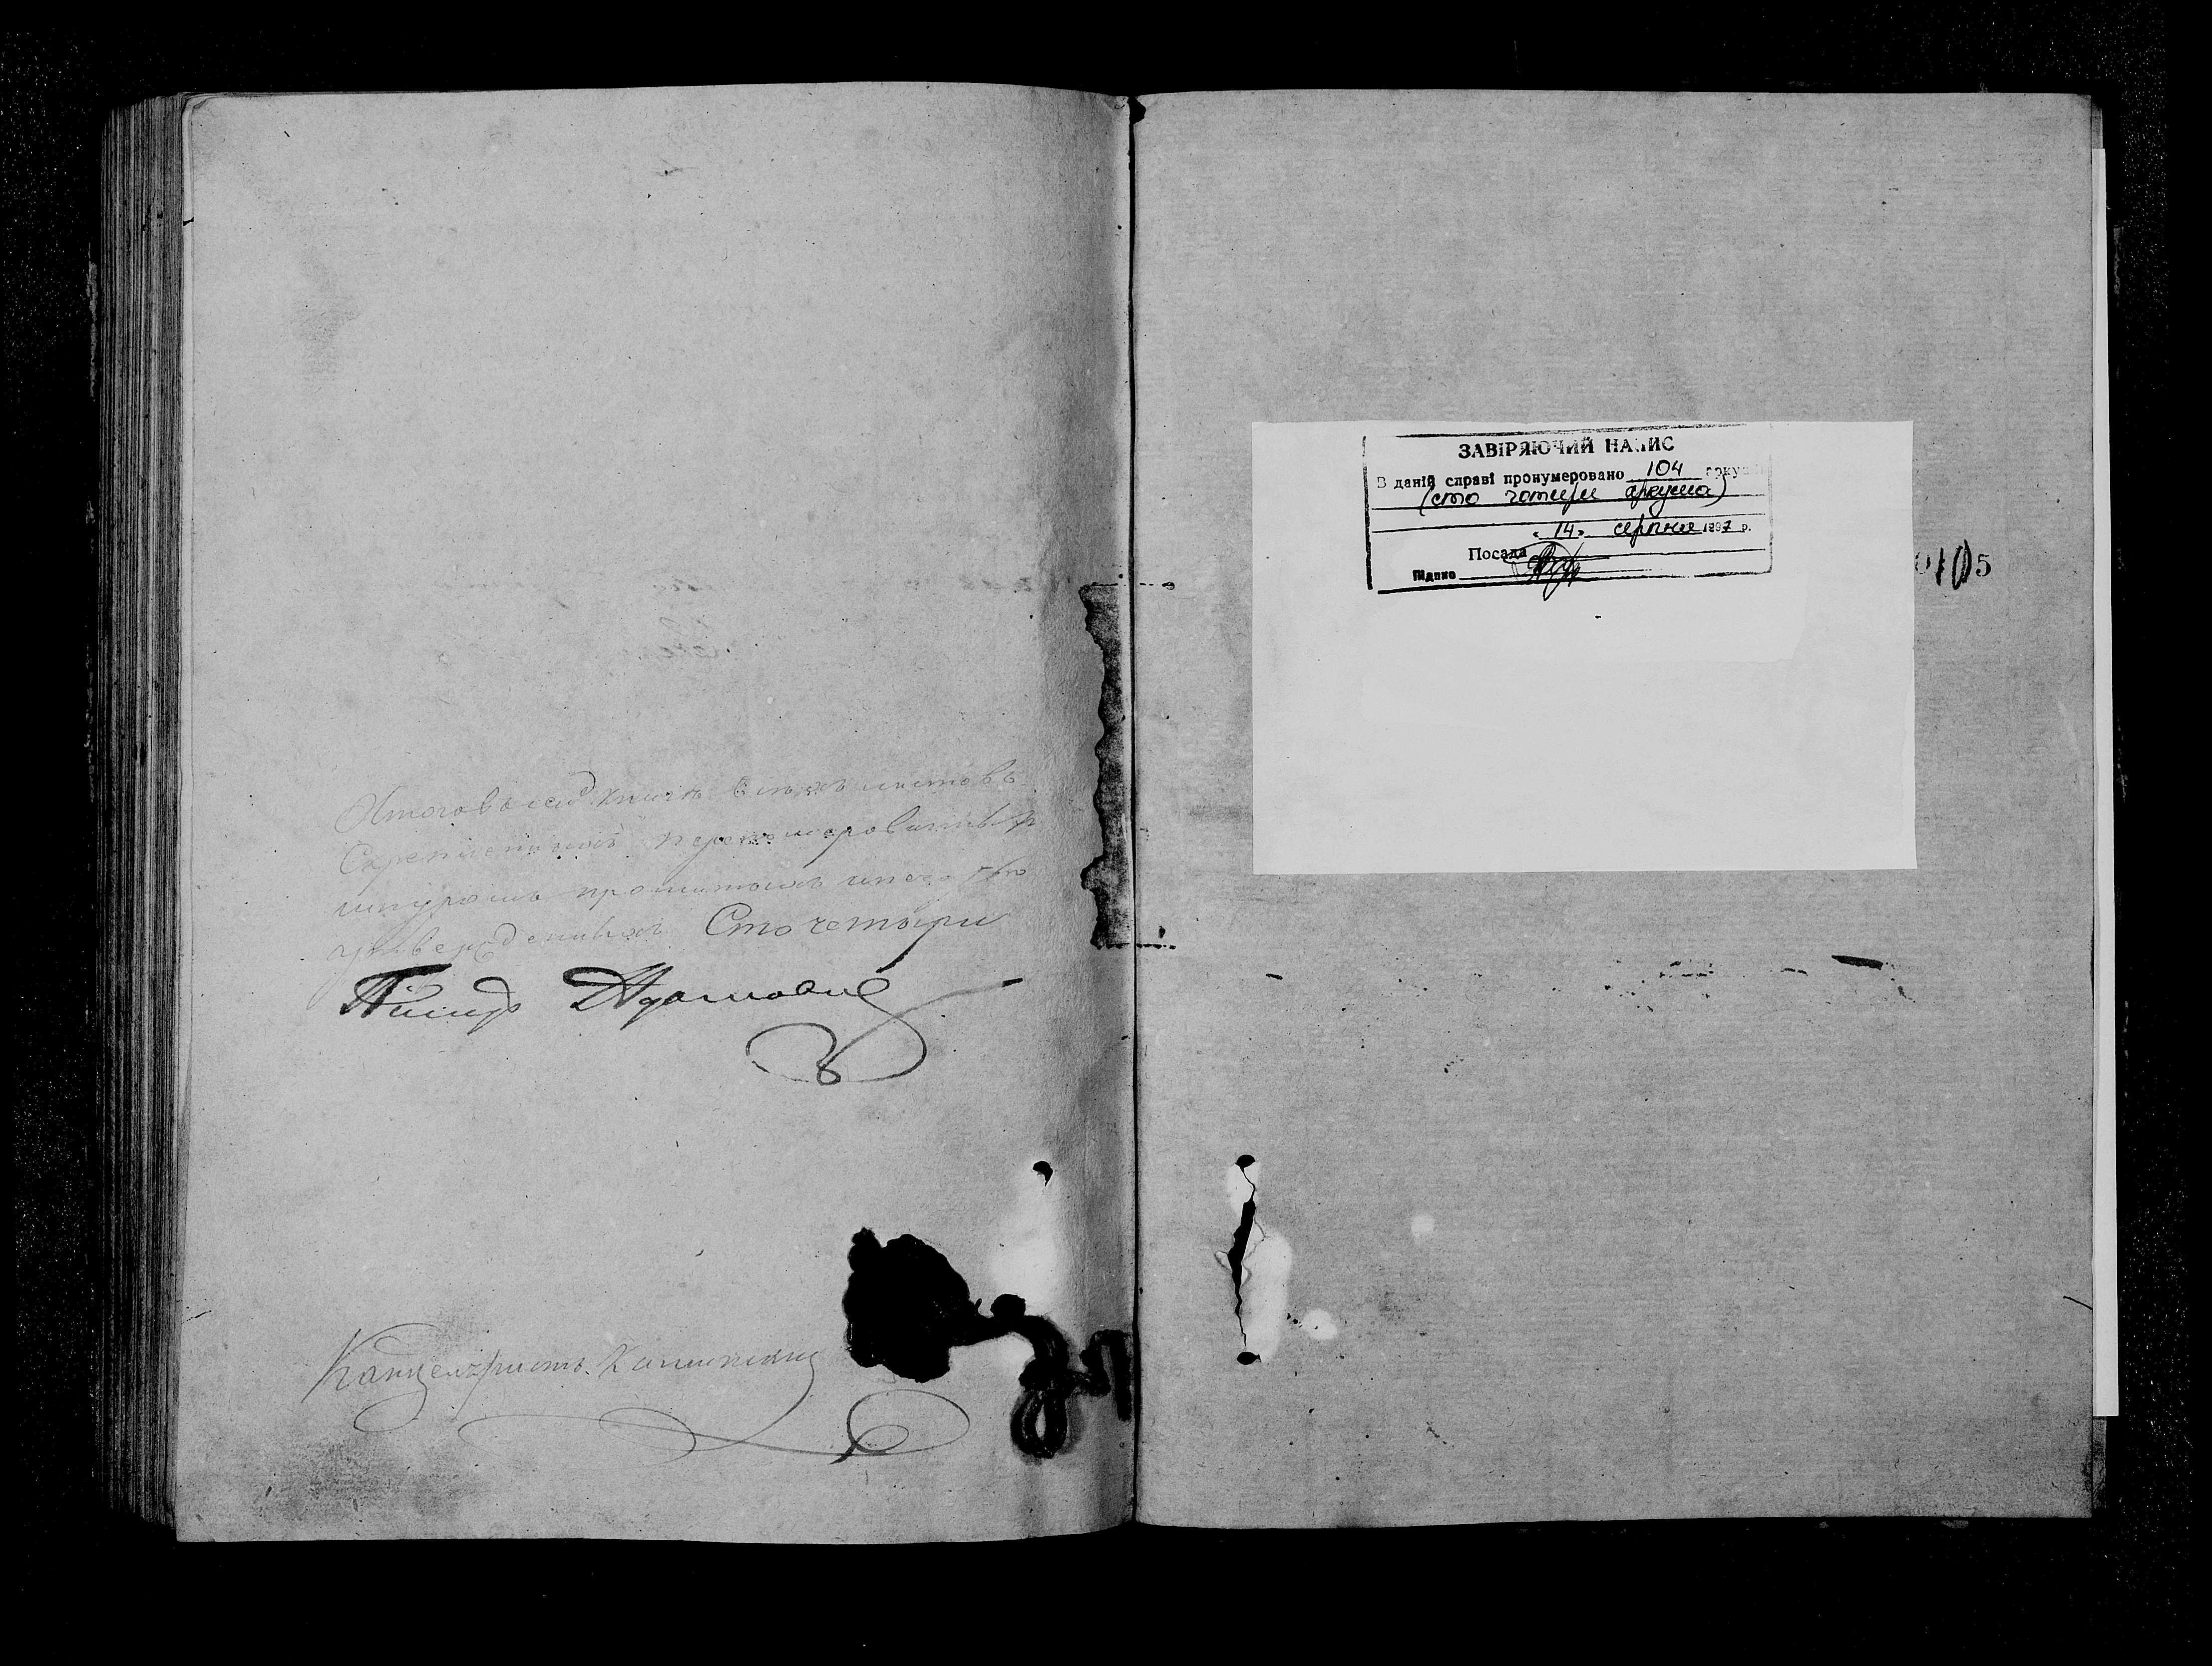 Итого въ сей книгѣ всѣхъ листовъ
Скрепленныхъ перенумерованныхъ
шнуромъ прошитыхъ и печатью
утвержденныхъ Сто четыри
Канцеляристъ
ЗАВІРЯЮЧИЙ НАПИС
В даній справі пронумеровано 104 аркуші
(сто чотири аркуша)
"14" серпня 1997 р.
Посада
Підпис
0105